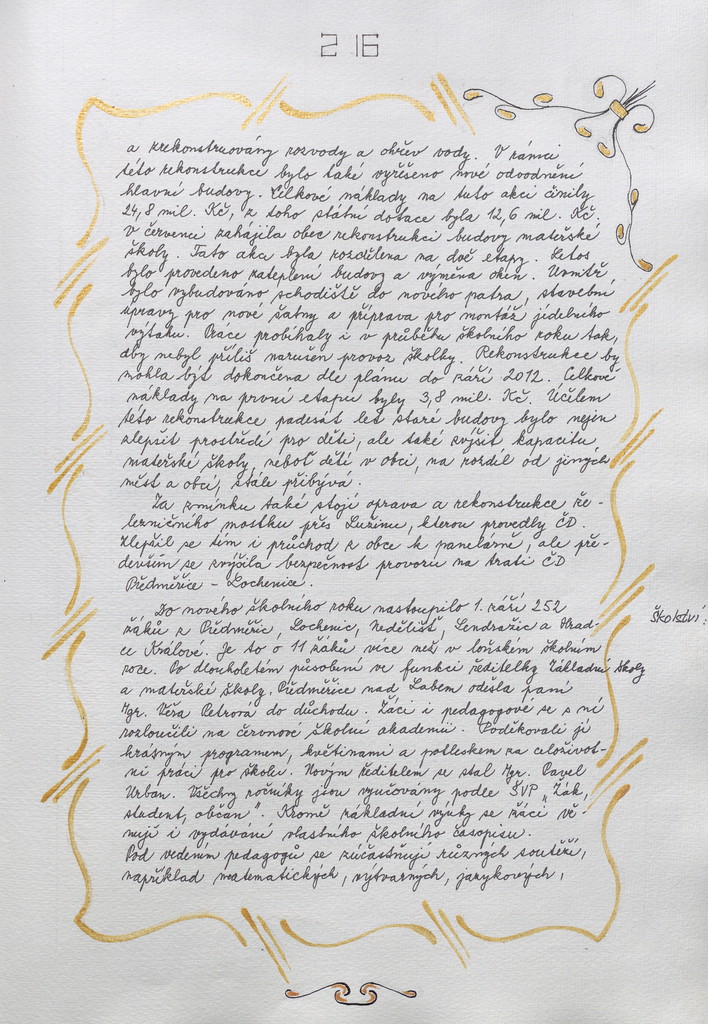 216
a zrekonstruovány rozvody a ohřev vody. V rámci
této rekonstrukce bylo také vyřešeno nové odvodnění
hlavní budovy. Celkové náklady na tuto akci činily
24,8 mil. Kč, z toho státní dotace byla 12,6 mil. Kč.
V červenci zahájila obec rekonstrukci budovy mateřské
školy. Tato akce byla rozdělena na dvě etapy. Letos
bylo provedeno zateplení budovy a výměna oken. Uvnitř
bylo vybudováno schodiště do nového patra, stavební
úpravy pro nové šatny a příprava pro montáž jídelního
výtahu. Práce probíhaly i v průběhu školního roku tak,
aby nebyl příliš narušen provoz školky. Rekonstrukce by
mohla být dokončena dle plánu do září 2012. Celkové
náklady na první etapu byly 3,8 mil. Kč. Účelem
této rekonstrukce padesát let staré budovy bylo nejen
zlepšit prostředí pro děti, ale také zvýšit kapacitu
mateřské školy, neboť dětí v obci, na rozdíl od jiných
měst a obcí, stále přibývá.
Za zmínku také stojí oprava a rekonstrukce že-
lezničního mostku přes Lužinu, kterou provedly ČD.
Zlepšil se tím i průchod z obce k panelárně, ale pře-
devším se zvýšila bezpečnost provozu na trati ČD
Předměřice - Lochenice.
Školství:
Do nového školního roku nastoupilo 1. září 252
žáků z Předměřic, Lochenic, Neděliště, Sendražic a Hrad-
ce Králové. Je to o 11 žáků více než v loňském školním
roce. Po dlouholetém působení ve funkci ředitelky Základní školy
a mateřské školy, Předměřice nad Labem odešla paní
Mgr. Věra Petrová do důchodu. Žáci i pedagogové se s ní
rozloučili na červnové školní akademii. Poděkovali jí
krásným programem, květinami a potleskem za celoživot-
ní práci pro školu. Novým ředitelem se stal Mgr. Pavel
Urban. Všechny ročníky jsou vyučovány podle ŠVP „Žák,
student, občan". Kromě základní výuky se žáci vě-
nují i vydávání vlastního školního časopisu.
Pod vedením pedagogů se zúčastňují různých soutěží,
například matematických, výtvarných, jazykových,